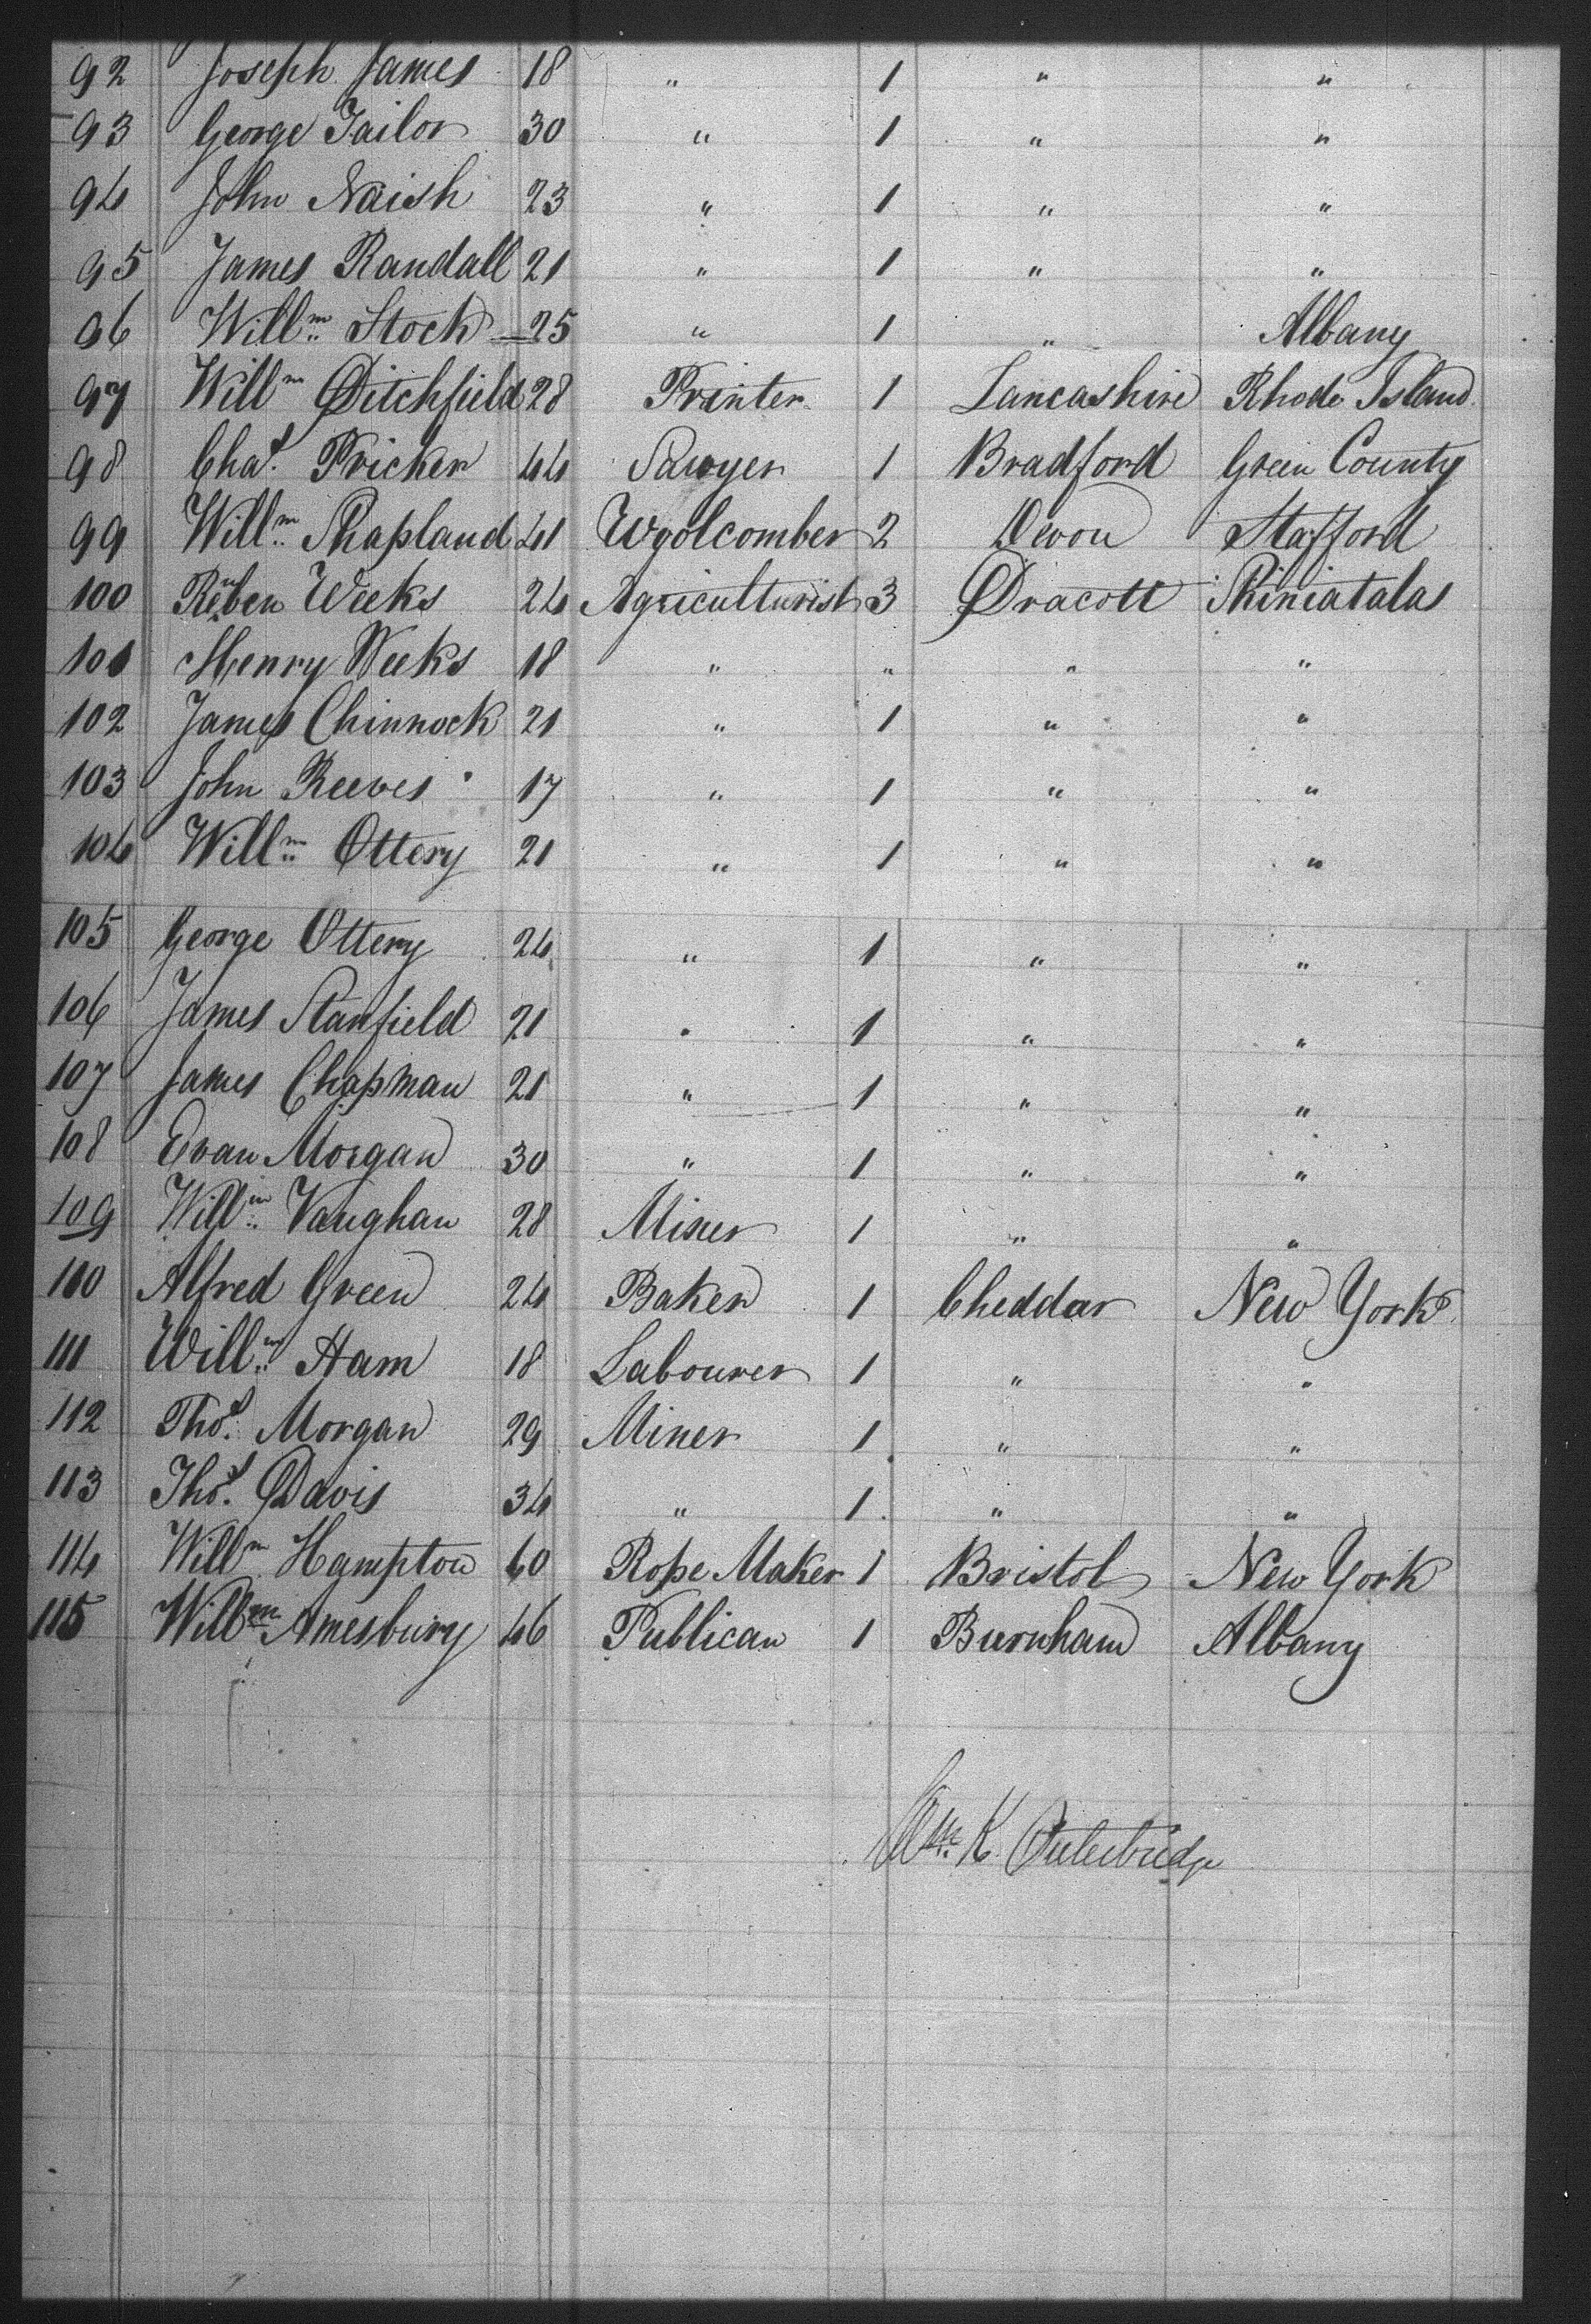 92 Joseph James 18 " 1 " "
93 George Tailor 30 " 1 " "
94 John Naish 23 " 1 " "
95 James Randall 21 " 1 " "
96 Willm Stock 25 " 1 " Albany
97 Willm Ditchfield 28 Printer 1 Lancashire Rhode Island
98 Chas. Pricker 44 Sawyer 1 Bradford Green County
99 Willm Shapland 41 Woolcomber 2 Devon Stafford
100 Reuben Weeks 24 Agriculturist 3 Dracott
101 Henry Weeks 18 " " " "
102 James Chinnock 21 " 1 " "
103 John Reeves 17 " 1 " "
104 Willm Ottery 21 " 1 " "
105 George Ottery 24 " 1 " "
106 James Stanfield 21 " 1 " "
107 James Chapman 21 " 1 " "
108 Evan Morgan 30 " 1 " "
109 Willm Vaughan 28 Miner 1 " "
110 Alfred Green 24 Baker 1 Cheddar New York
111 Willm Ham 18 Labourer 1 " "
112 Thos. Morgan 29 Miner 1 " "
113 Thos. Davis 34 " 1 " "
114 Willm Hampton 60 Rope Maker 1 Bristol New York
115 Willm Amesbury 46 Publican 1 Burnham Albany
Wm. K. Outerbridge